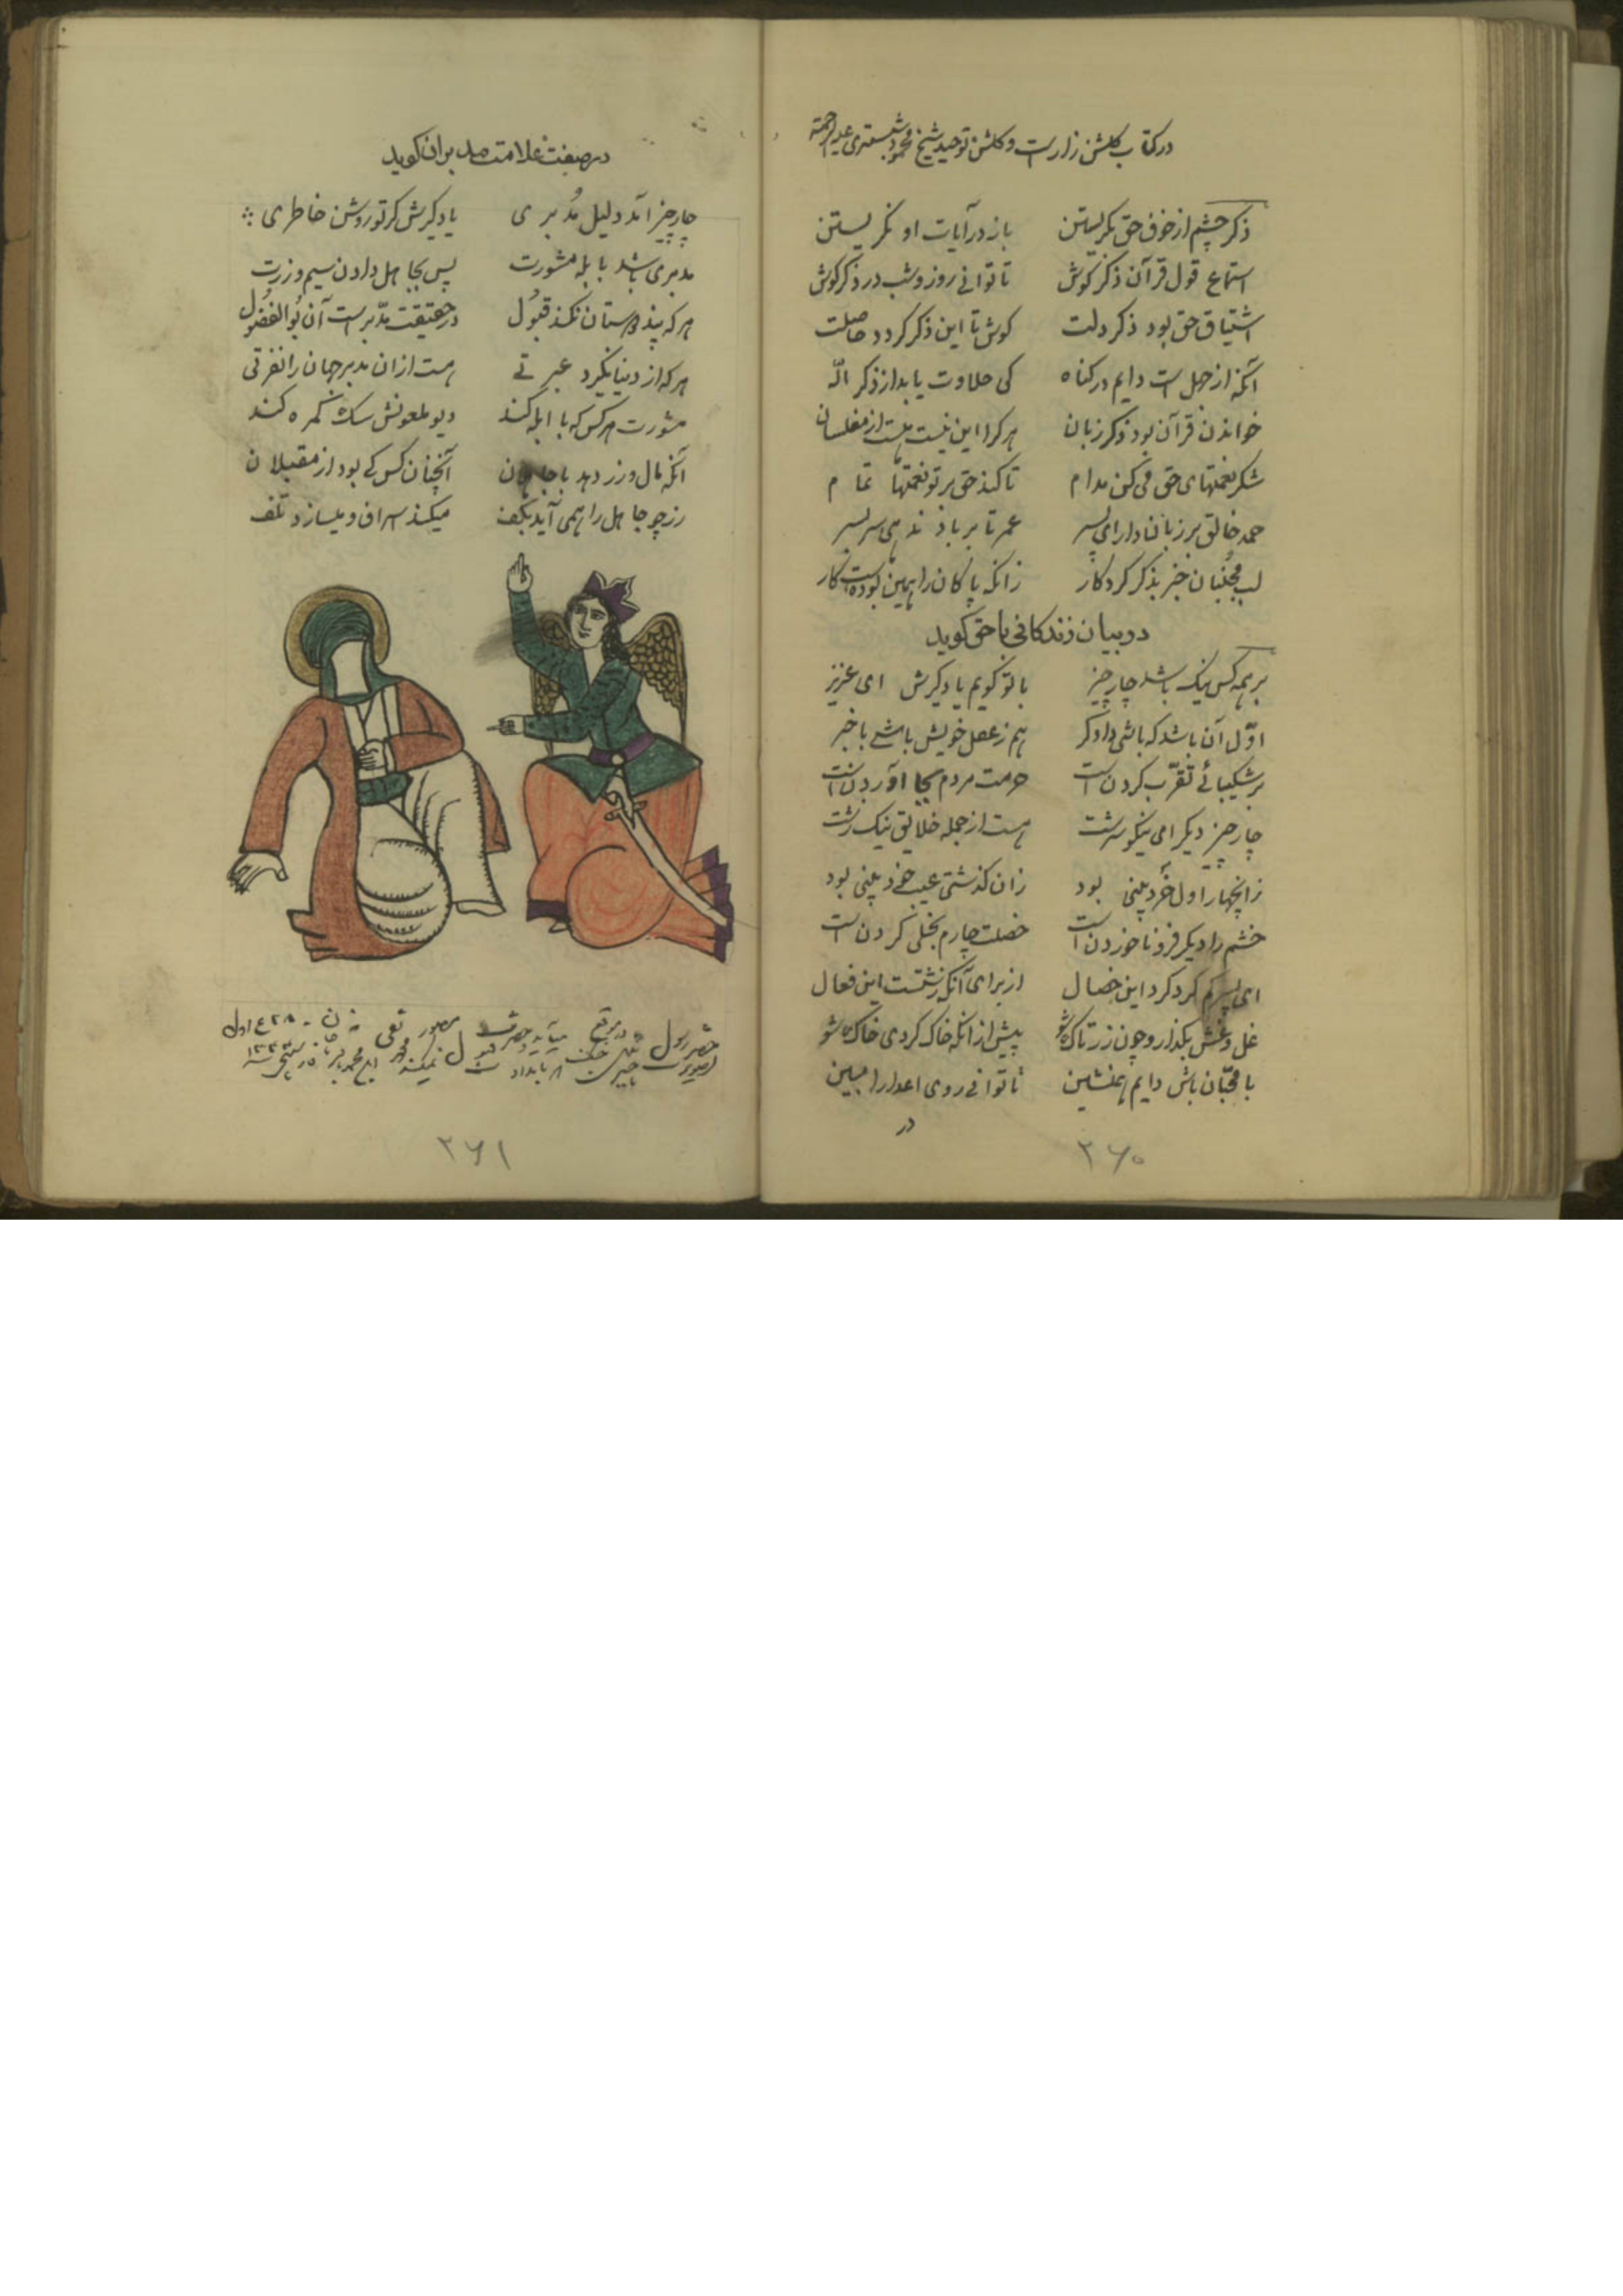 در کتاب گلشن زار است و گلشن توحید شیخ محمود شبستری علیه الرحمة
ذکر چشم از خوف حق بکریستن باز در آیات او نکریستن
استماع قول قرآن ذکر کوش تا توانی روز و شب در ذکر کوش
اشتیاق حق بود ذکر دلت کوش تا این ذکر کردد حاصلت
آنکه از جهل است دایم در کناه کی حلاوت یابد از ذکر اله
خواندن قرآن بود ذکر زبان هر کرا این نیست هست از مفلسان
شکر نعمتهای حق می کن مدام تا کند حق بر تو نعمتها تمام
حمد خالق بر زبان دار ای پسر عمر تا بر باد ندهی سربسر
لب مجنبان جز بذکر کردکار زانکه پاکان را همین بودست کار
در بیان زندکانی با حق کوید
بر همه کس نیک باشد چار چیز با تو کویم یاد کیرش ای عزیز
اول آن باشد که باشی دادکر هم ز عقل خویش باشی با خبر
بر شکیبائی تقرب کردن است حرمت مردم بجا آوردن است
چار چیز دیکر امی نیکو سرشت هست از جمله خلایق نیک زشت
زانچهار اول خرد بینی بود زان کذشتی عیب خود بینی بود
خشم را دیکر فرو نا خوردن است خصلت چارم بخلی کردن است
ای پسر کم کرد کرد این خصال از برای آنکه زشتست این فعال
غل و غش بکذار و چون زر تاک شو پیش از آنکه خاک کردی خاک شو
با محبان باش دایم همنشین تا توانی روی اعدا را مبین
در
۲۶۰
در صفت علامت مدبران کوید
چار چیز آمد دلیل مدبری یاد کیرش کر تو روشن خاطری
مدبری باشد با بله مشورت پس بجاهل دادن سیم و زرت
هر که پند دوستان نکند قبول در حقیقت مدبر است آن بوالفضول
هر که از دنیا نکیرد عبرتی هست از ان مدبر جهان را نفرتی
مشورت هر کس که با ابله کند دیو ملعونش سک کمره کند
آنکه مال و زر دهد با جاهلان آنچنان کس کی بود از مقبلان
زر چو جاهل را همی آید بکف میکند اسراف و میسازد تلف
حضر رسول در موقع میآید و حضرت مصور تقی
۲۶۱